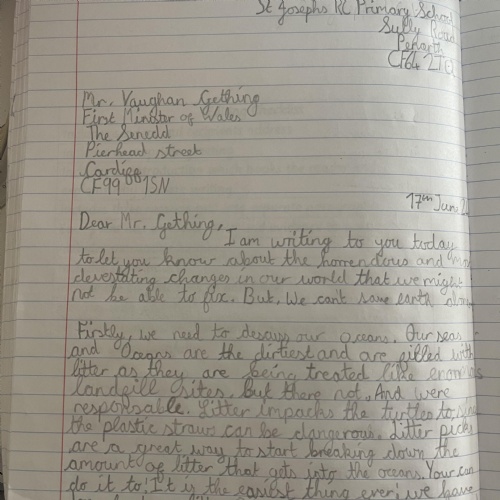 St Josephs RC Primary School
Sully Road
Penarth
CF64 2TQ
Mr. Vaughan Gething
First Minster of Wales
The Senedd
Pierhead street
Cardiff
CF99 1SN
17th June
Dear Mr. Gething,
I am writing to you today
to let you know about the horrendous and
devestating changes in our world that we might
not be able to fix. But, we can't save earth alone
Firstly, we need to our oceans. Our seas
and Oceans are the dirtiest and are filled with
litter as they are being treated like enormous
landfill sites, but there not. And were
responsable. Litter impacks the turtles to, since
the plastic straws can be dangerous. Litter picks
are a great way to start breaking down the
amount of litter that gets into the oceans. Your can
do it to! It is the easiest thing ever! we have